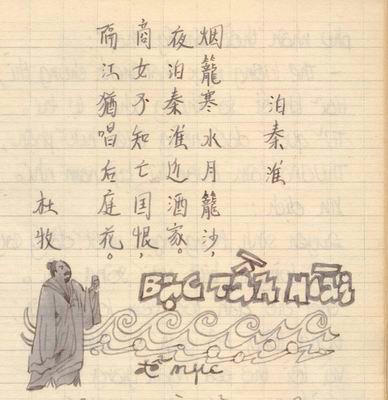 泊秦淮
烟籠寒水月籠沙，
夜泊秦淮近酒家。
商女不知亡国恨，
隔江猶唱后庭花。
杜牧
BẠC TẦN HOÀI
đỗ mục